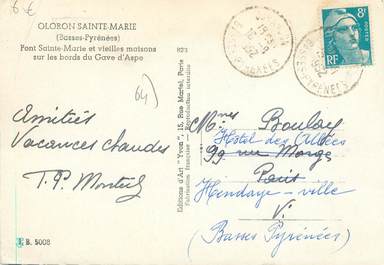 6€
OLORON SAINTE-MARIE
(Basses-Pyrénées)
Pont Sainte-Marie et vieilles maisons
sur les bords du Gave d'Aspe
823
64)
Amitiés
Vacances chaudes
T.P.
I. B. 5008
Editions d'Art "Yvon", 15, Rue Martel, Paris
Fabrication française - Reproduction interdite
8F
Boulay
Hôtel des Allées
99 rue Monge
Paris
Hendaye - ville
V.
(Basses Pyrénées)